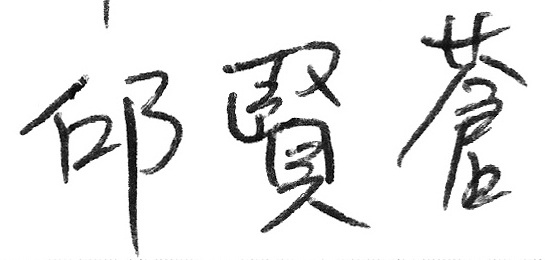 邱賢蒼